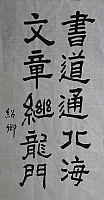 書道通北海
文章繼龍門
紹卿